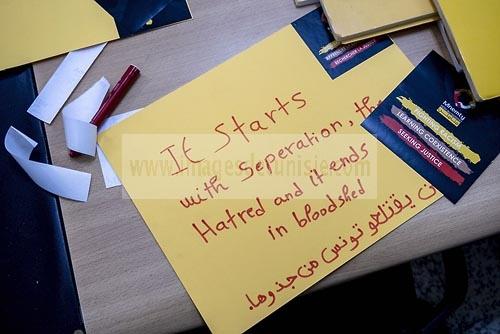 It Starts
with seperation, the
Hatred and it ends
in bloodshed
يقتلعو تونس من جذوها.
www.imagesdetunisie.com
Mnemty
FIGHTING RACISM
LEARNING COEXISTENCE
SEEKING JUSTICE